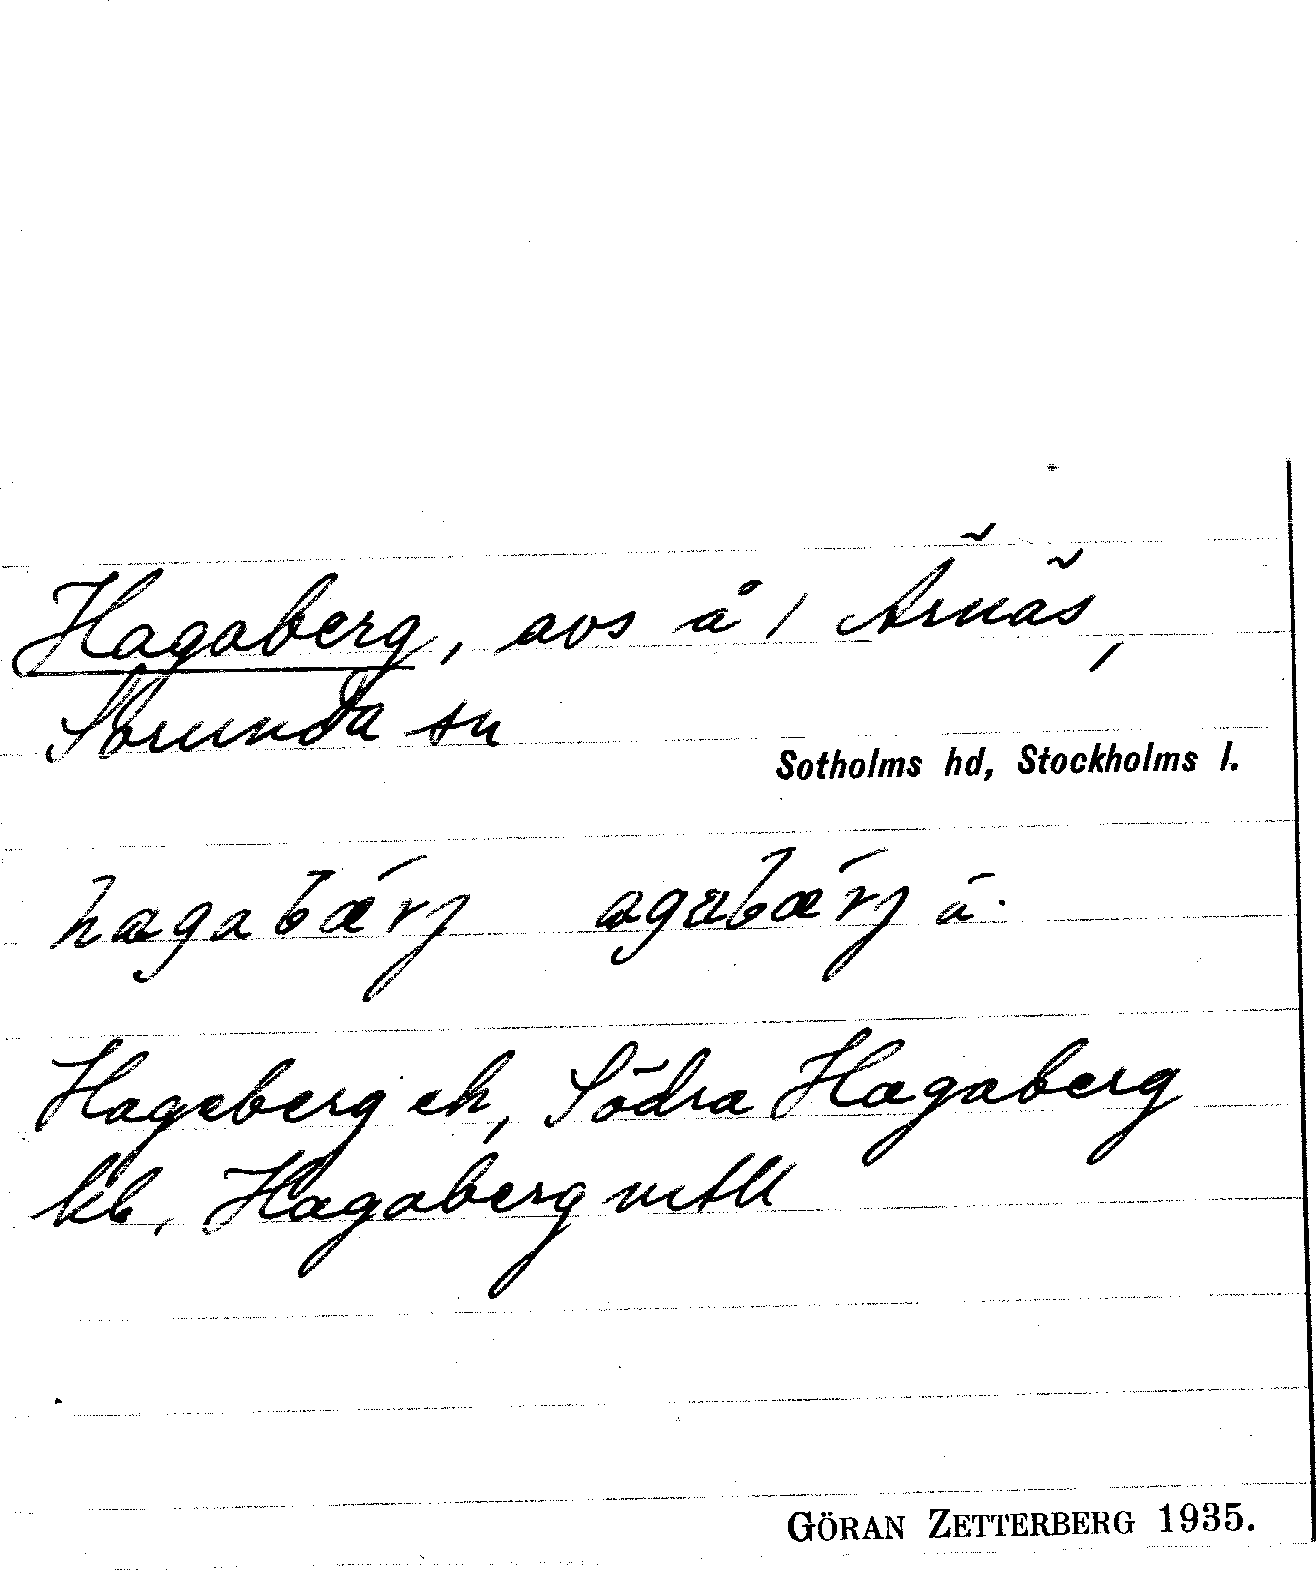 Hagaberg, avs å 1 Ärnäs,
Sorunda sn
Sotholms hd, Stockholms l.
hagabærj agabærj å.
Hagaberg ek, Södra Hagaberg
kb, Hagaberg mtll
GÖRAN ZETTERBERG 1935.